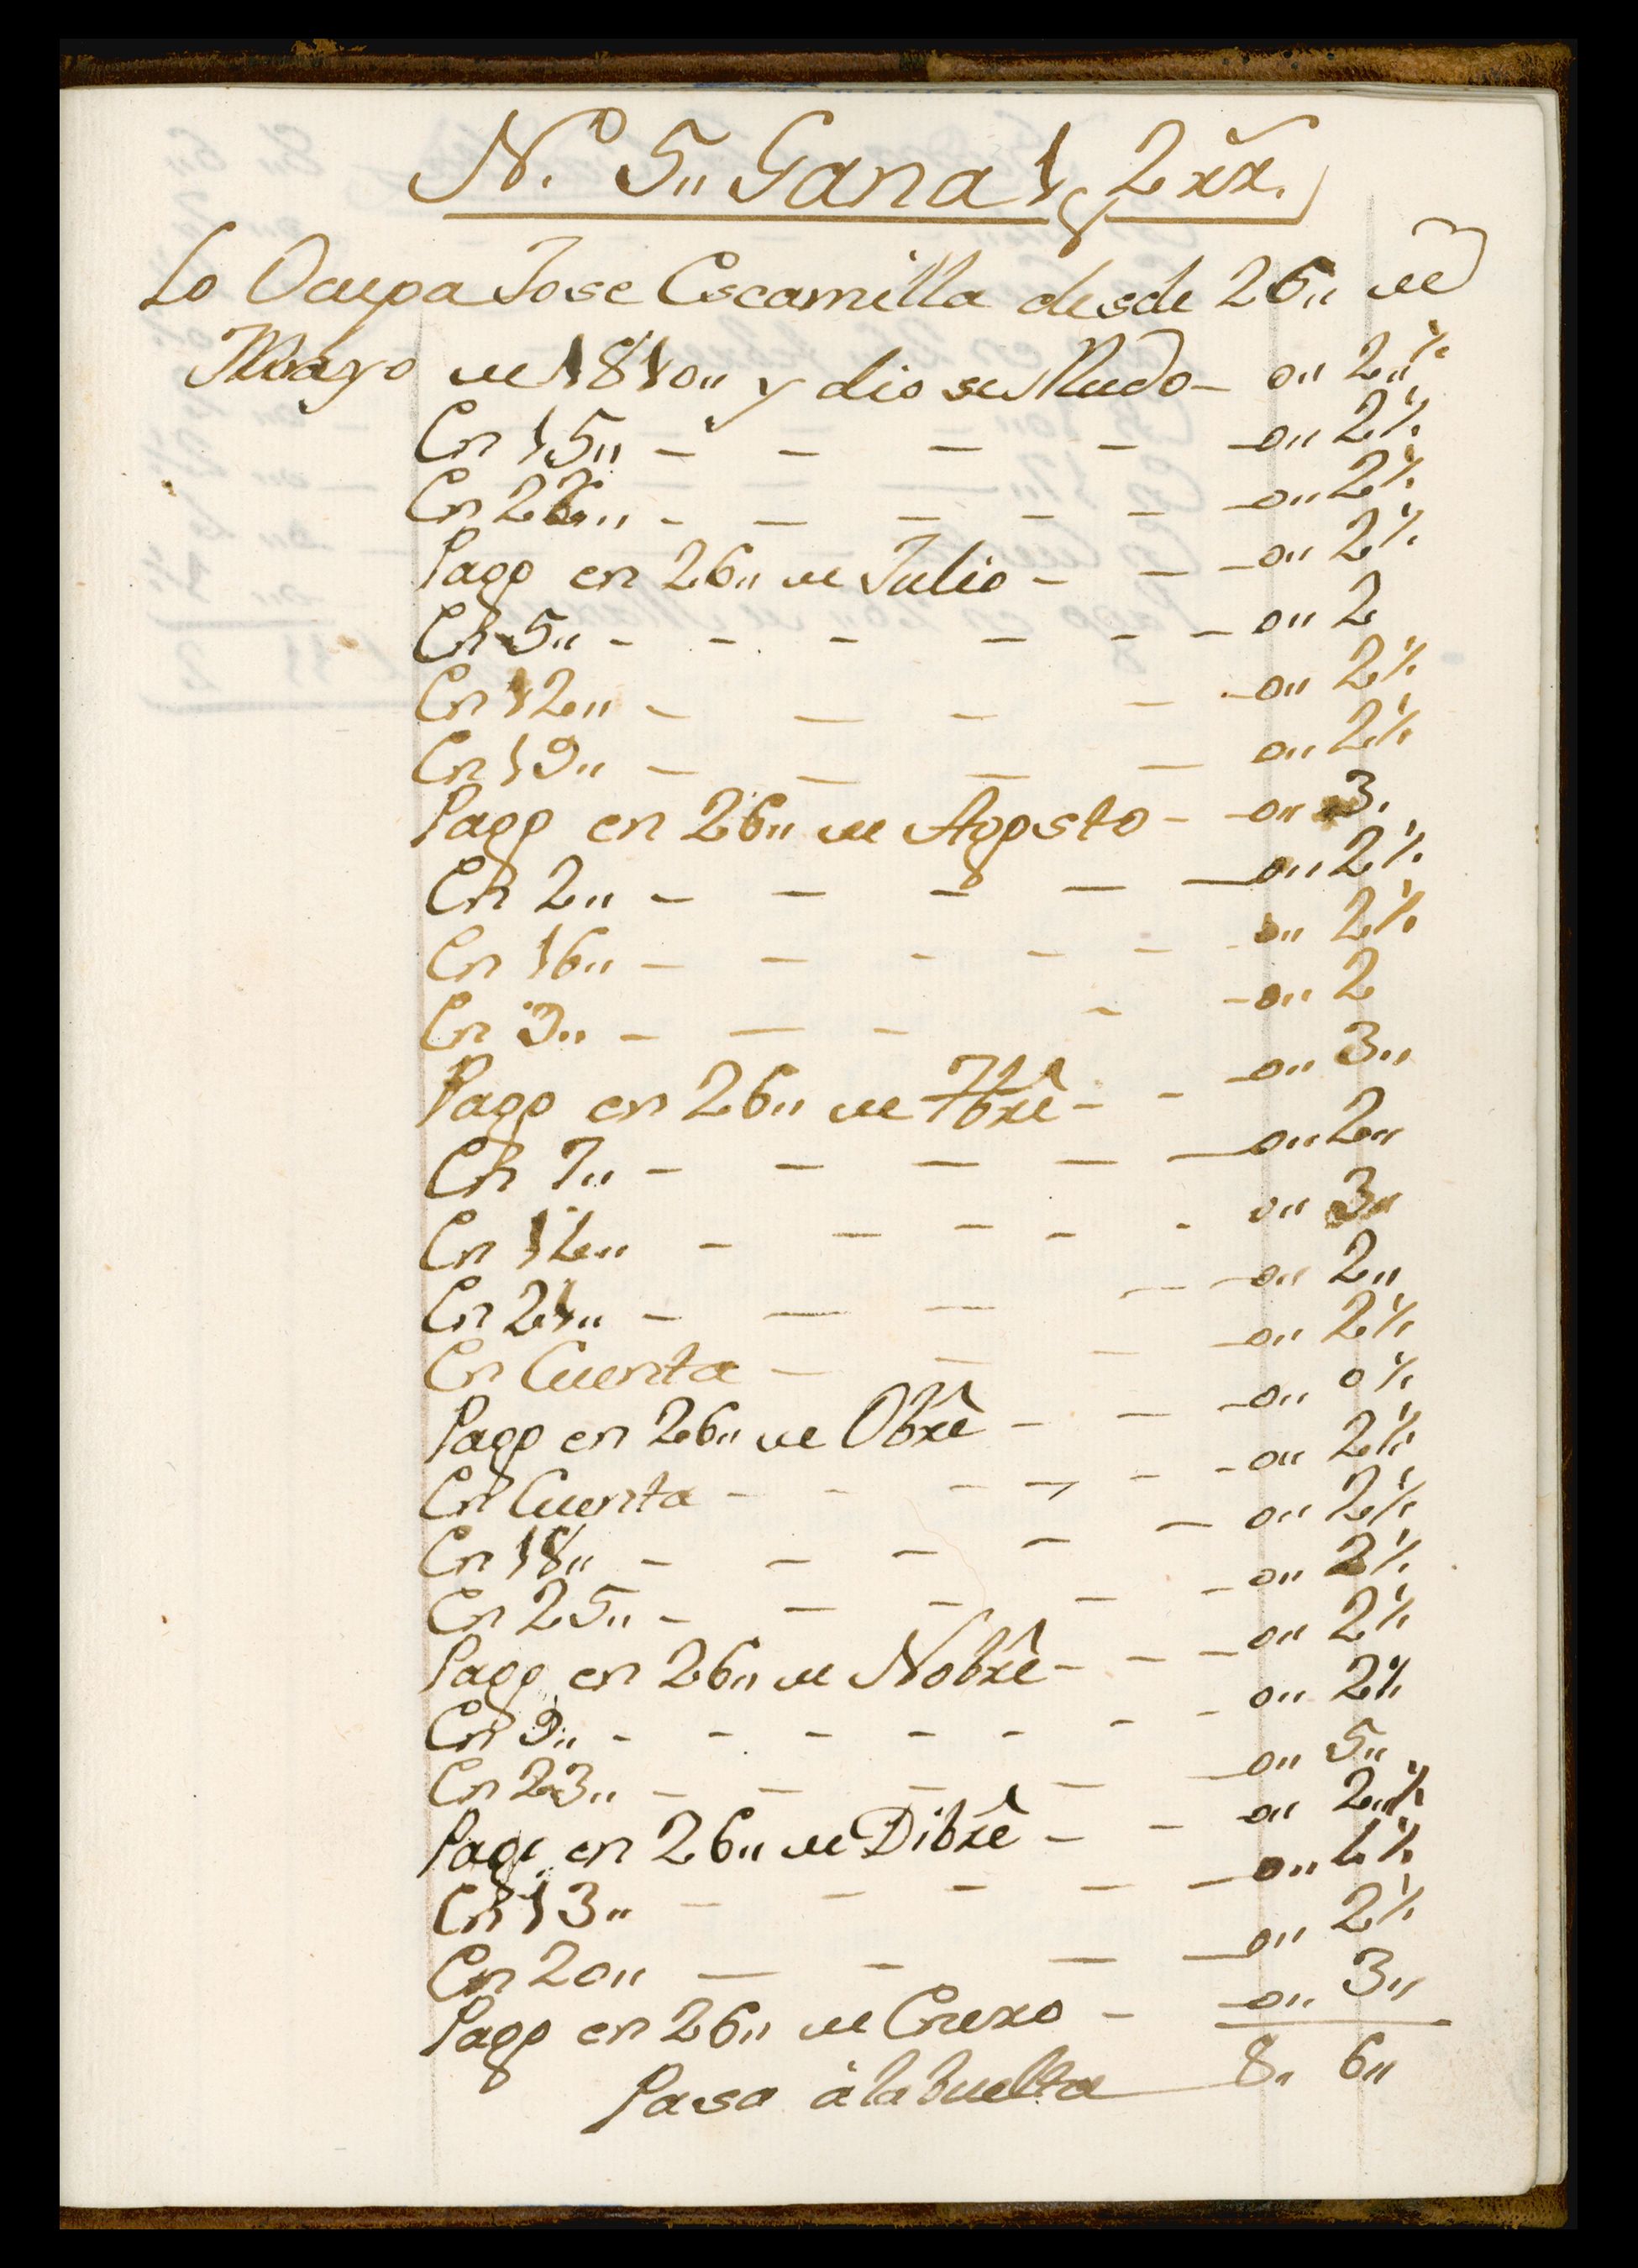 N.º 5,, Gana 1, y 2 rr.
Lo Ocupa Jose Escamilla desde 26,, de
Mayo de 1810,, y dio su Mudo - 0,, 2,,½
En 15,, - - - - 0,, 2½
En 26,, - - - - - 0,, 2½
Pago en 26,, de Julio - - - 0,, 2½
En 5,, - - - - - - 0,, 2
En 12,, - - - - - 0,, 2½
En 19,, - - - - 0,, 2½
Pago en 26,, de Agosto - - 0,, 3,
En 2,, - - - - - 0,, 2½
En 16,, - - - - - - 0,, 2½
En 9,, - - - - - 0,, 2
Pago en 26,, de 7bre - - - 0,, 3,,
En 7,, - - - - - 0,, 2,,
En 12,, - - - - - 0,, 3,,
En 21,, - - - - - 0,, 2,,
En Cuenta - - - - 0,, 2½
Pago en 26,, de Obre - - - 0,, 0½
En Cuenta - - - - - - 0,, 2½
En 18,, - - - - - 0,, 2½
En 25,, - - - - - 0,, 2½
Pago en 26,, de Nobre - - - 0,, 2½
En 9,, - - - - - - - 0,, 2½
En 23,, - - - - - 0,, 5,,
Pago en 26,, de Dibre - - 0,, 2,,½
En 13,, - - - - - 0,, ½
En 20,, - - - - 0,, 2½
Pago en 26,, de Enero - 0,, 3,,
Pasa à la buelta 8,, 6,,